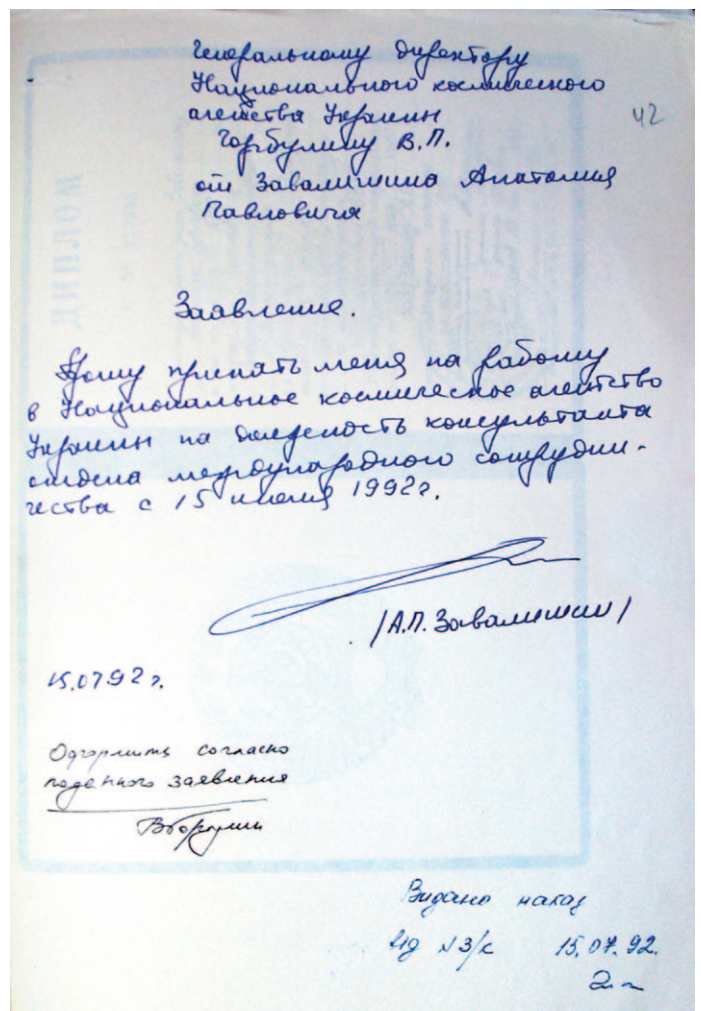 Генеральному директору
Национального космического
агентства Украины
Горбулину В.П.
42
от Завалишина Анатолия
Павловича
Заявление.
Прошу принять меня на работу
в Национальное космическое агентство
Украины на должность консультанта
отдела международного сотрудни-
чества с 15 июля 1992г.
/А.П. Завалишин/
15.07.92г.
Оформить согласно
поданного заявления
ВГорбулин
Видано наказ
від №3/к 15.07.92.
ДИПЛОМ